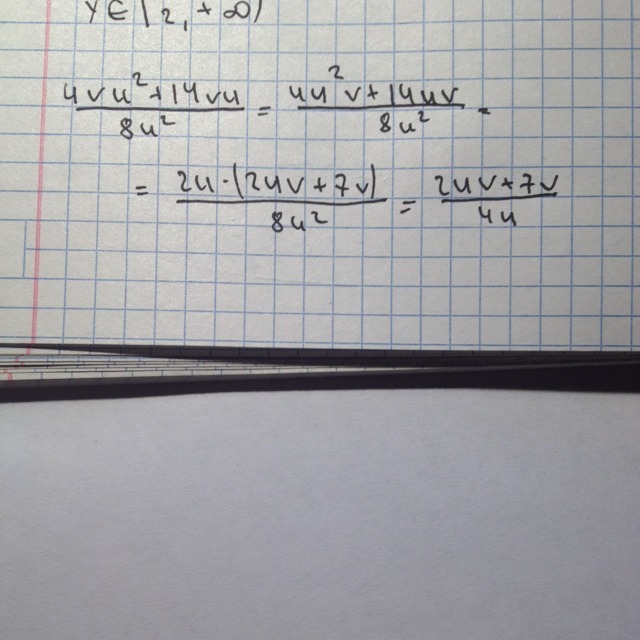 YE(2, +∞)
4vu²+14vu / 8u² = 4u²v+14uv / 8u² =
= 2u·(2uv+7v) / 8u² = 2uv+7v / 4u